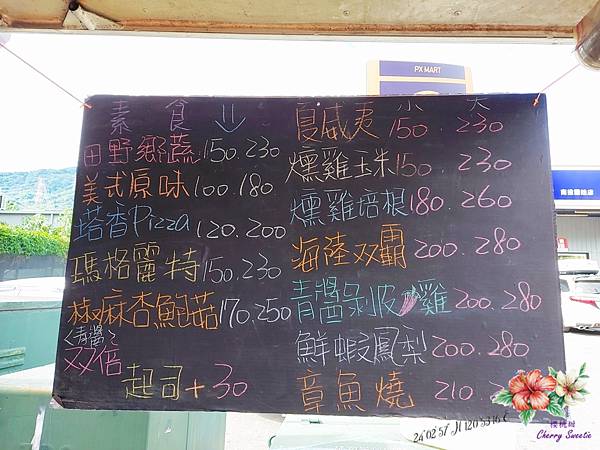 PX MART
素食
田野鄉蔬 150. 230
美式原味 100. 180
塔香Pizza 120. 200
瑪格麗特 150. 230
椒麻杏鮑菇 170. 250
<青醬>
双倍
起司+30
小 大
夏威夷 150. 230
燻雞玉米 150. 230
燻雞培根 180. 260
海陸双霸 200. 280
青醬剝皮 雞 200. 280
鮮蝦鳳梨 200. 280
章魚燒 210.
櫻桃
Cherry Sweetie